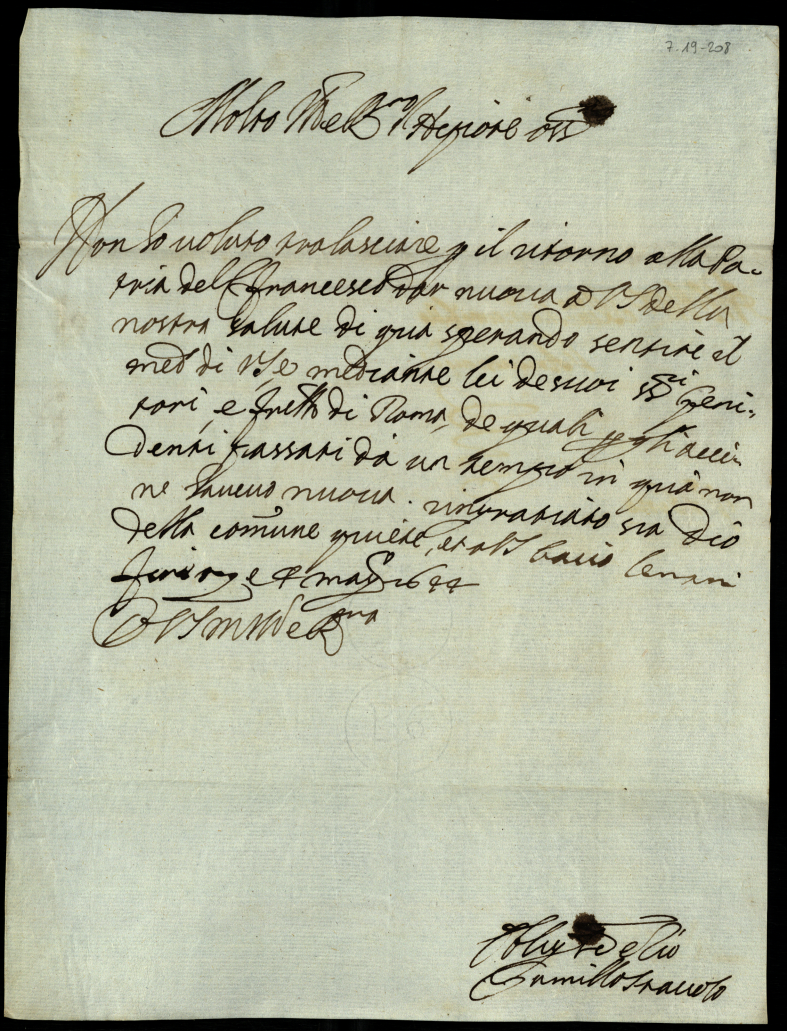 7-19-208
Molto Ill.e R.mo Sig.re oss.
Non ho voluto tralasciare p il ritorno alla Pa-
tria del francesco dar nuova a VS della
nostra salute di quà sperando sentire il
med.o di VS, e mediante lei de suoi SS.ri geni-
tori, e frello di Roma, de quali p gli acci-
denti passati da un tempo in quà non
ne havevo nuova. ringratiato sia Dio
della comune quiete, et a VS bacio le mani
e mag. 1644
D VS m Ill e R.ma
Zio
Camillo